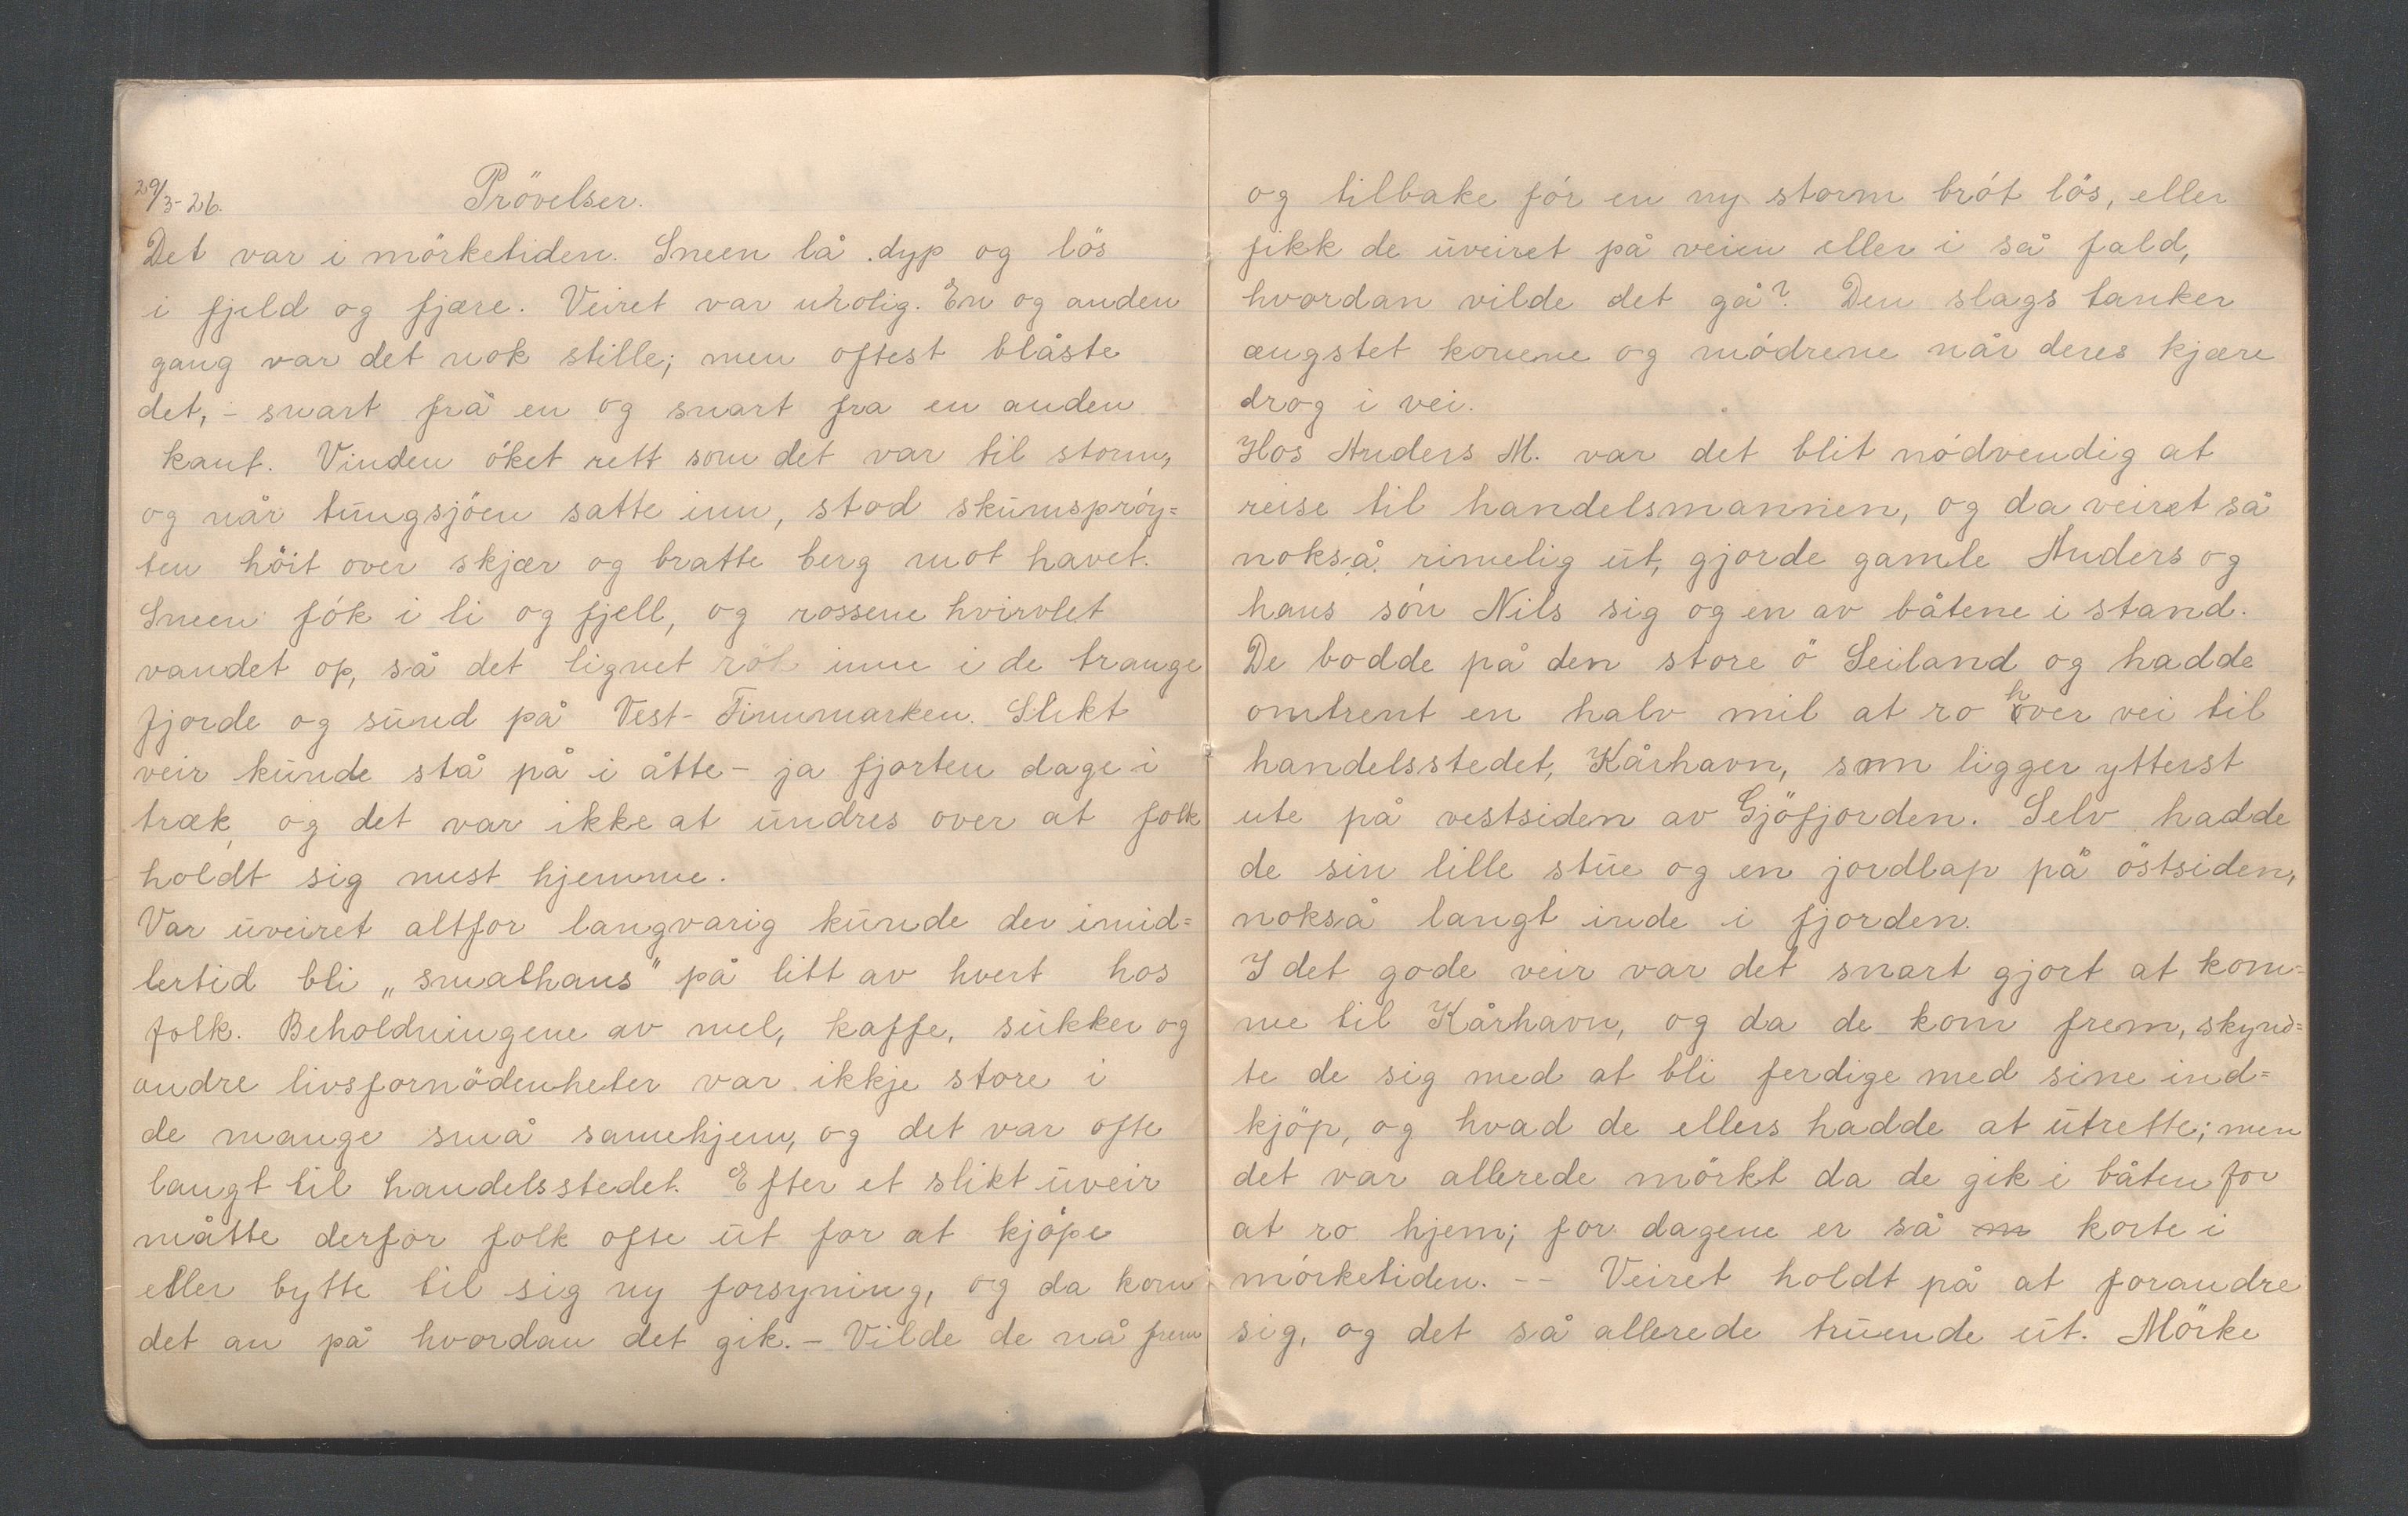 29/3-26.
Prövelser.
Det var i mörketiden. Sneen lå dyp og lös
i fjeld og fjære. Veiret var urolig. En og anden
gang var det nok stille; men oftest blåste
det, - snart frå en og snart fra en anden
kant. Vinden öket rett som det var til storm,
og når tungsjöen satte inn, stod skumspröy=
ten höit over skjær og bratte berg mot havet.
Sneen fök i li og fjell, og rossene hvirvlet
vandet op, så det lignet rök inne i de trange
fjorde og sund på Vest-Finnmarken. Slikt
veir kunde stå på i åtte - ja fjorten dage i
træk, og det var ikke at undres over at folk
holdt sig mest hjemme.
Var uveiret altfor langvarig kunde der imid=
lertid bli „smalhans" på litt av hvert hos
folk. Beholdningene av mel, kaffe, sukker og
andre livsfornödenheter var ikkje store i
de mange små samehjem, og det var ofte
langt til handelsstedet. Efter et slikt uveir
måtte derfor folk ofte ut for at kjöpe
eller bytte til sig ny forsyning, og da kom
det an på hvordan det gik. - Vilde de nå frem
og tilbake för en ny storm bröt lös, eller
fikk de uveiret på veien eller i så fald,
hvordan vilde det gå? Den slags tanker
ængstet konene og mödrene når deres kjære
drog i vei.
Hos Anders M. var det blit nödvendig at
reise til handelsmannen, og da veiret så
nokså rimelig ut, gjorde gamle Anders og
hans sön Nils sig og en av båtene i stand.
De bodde på den store ö Seiland og hadde
omtrent en halv mil at ro hver vei til
handelsstedet, Kårhavn, som ligger ytterst
ute på vestsiden av Gjöfjorden. Selv hadde
de sin lille stue og en jordlap på östsiden,
nokså langt inde i fjorden.
I det gode veir var det snart gjort at kom=
me til Kårhavn, og da de kom frem, skynd=
te de sig med at bli ferdige med sine ind=
kjöp, og hvad de ellers hadde at utrette; men
det var allerede mörkt da de gik i båten for
at ro hjem; for dagene er så m korte i
mörketiden. -- Veiret holdt på at forandre
sig, og det så allerede truende ut. Mörke